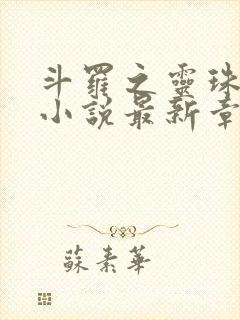 斗羅之靈珠
小說最新章
蘇素華